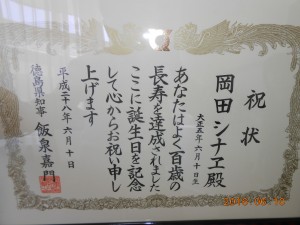 祝状
岡田シナヱ殿
大正五年六月十日生
あなたはよく百歳の
長寿を達成されました
ここに誕生日を記念
して心からお祝い申し
上げます
平成二十八年六月十日
徳島県知事 飯泉嘉門